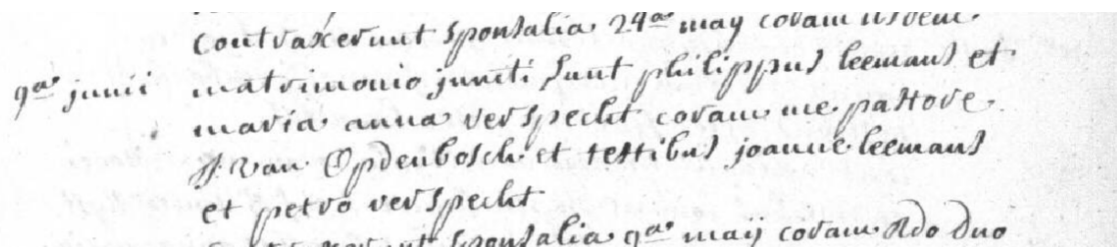 contraxerunt sponsalia 24ta may coram iisdem
9na junii matrimonio juncti sunt philippus leemans et
maria anna verspecht coram me pastore
J: van Opdenbosch et testibus joanne leemans
et petro verspecht
sponsalia 9na maij coram Rdo Duo